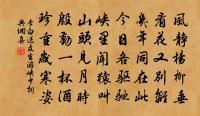 風靜楊柳垂
看花又別離
幾年同在此
今日各驅馳
峽里聞猿叫
山頭見月時
殷勤一杯酒
珍重歲寒姿
李白送友生遊峽中詞